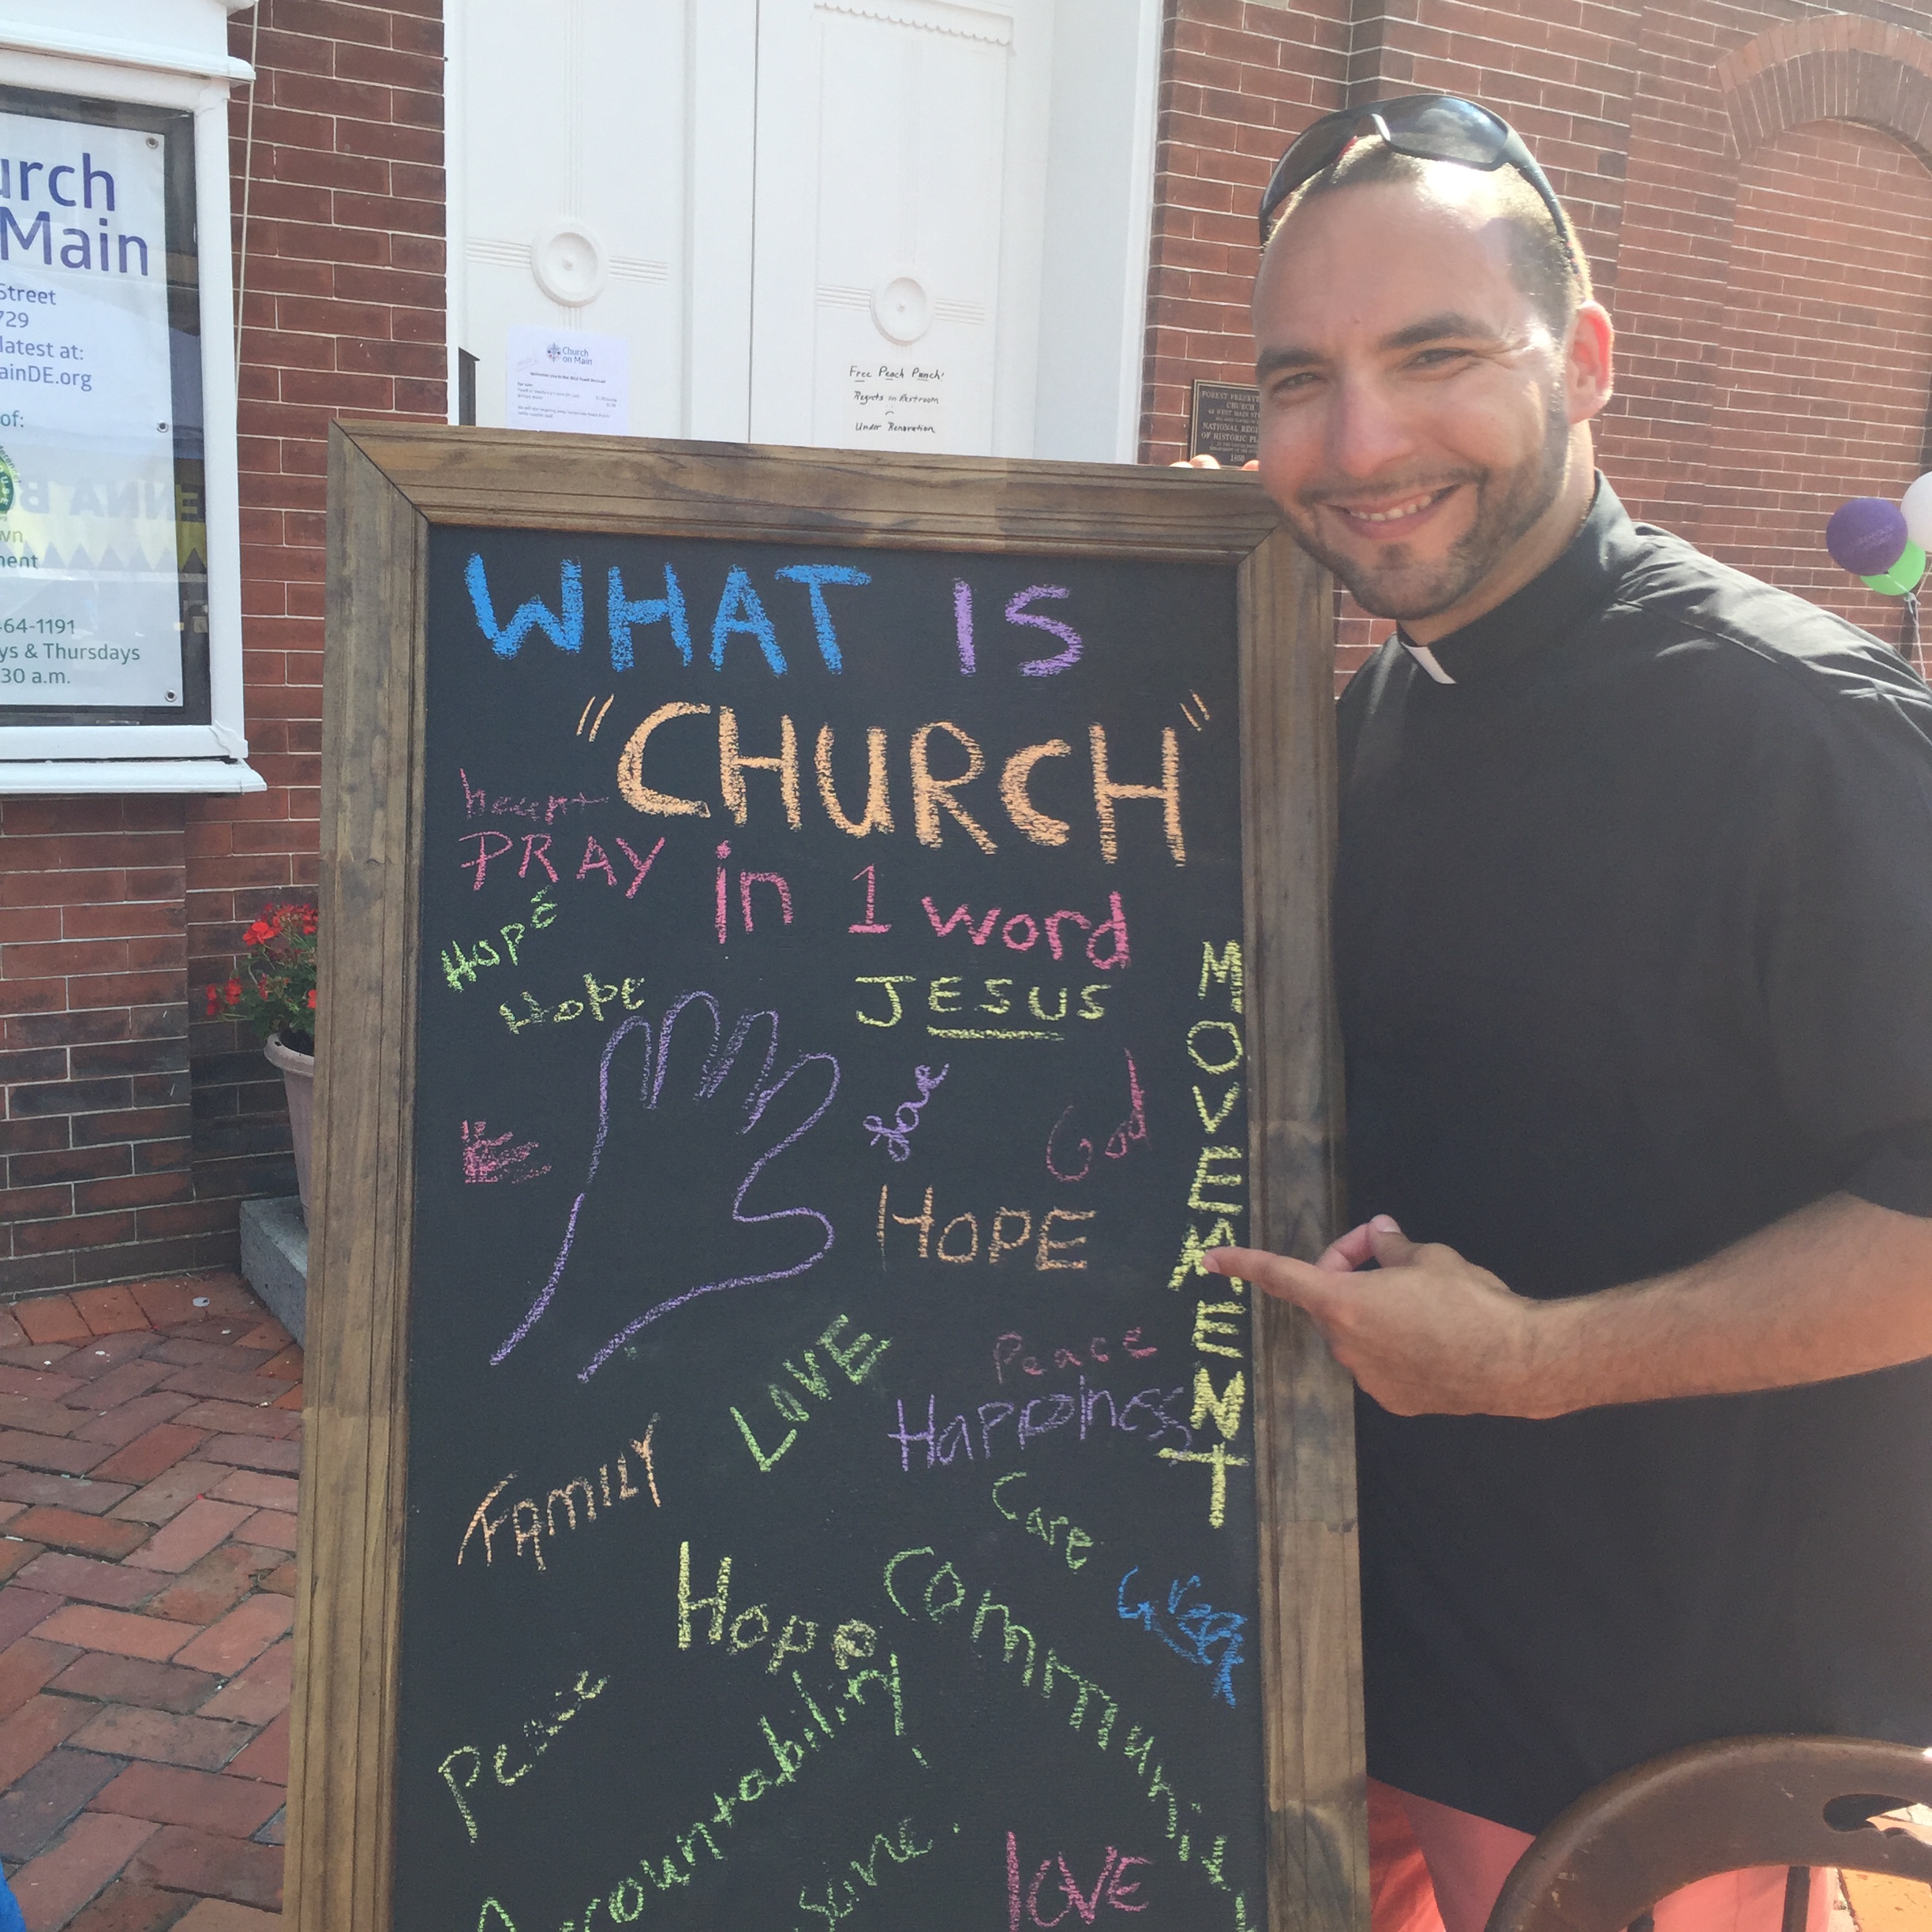 urch
Main
Street
729
latest at:
ainDE.org
of:
wn
ment
64-1191
ys & Thursdays
30 a.m.
Church
on Main
Free Peach Punch!
Regrets in Restroom
Under Renovation
FOREST PRESBYT
CHURCH
NATIONAL REGI
OF HISTORIC PL
WHAT IS
"CHURCH"
heart
PRAY in 1 word
Hope
Hope
JESUS
MOVEMENT
love
God
HOPE
LOVE
Peace
Happiness
FAMILY
Care
Hope
Communit
Great
Peace
Accountability
LOVE